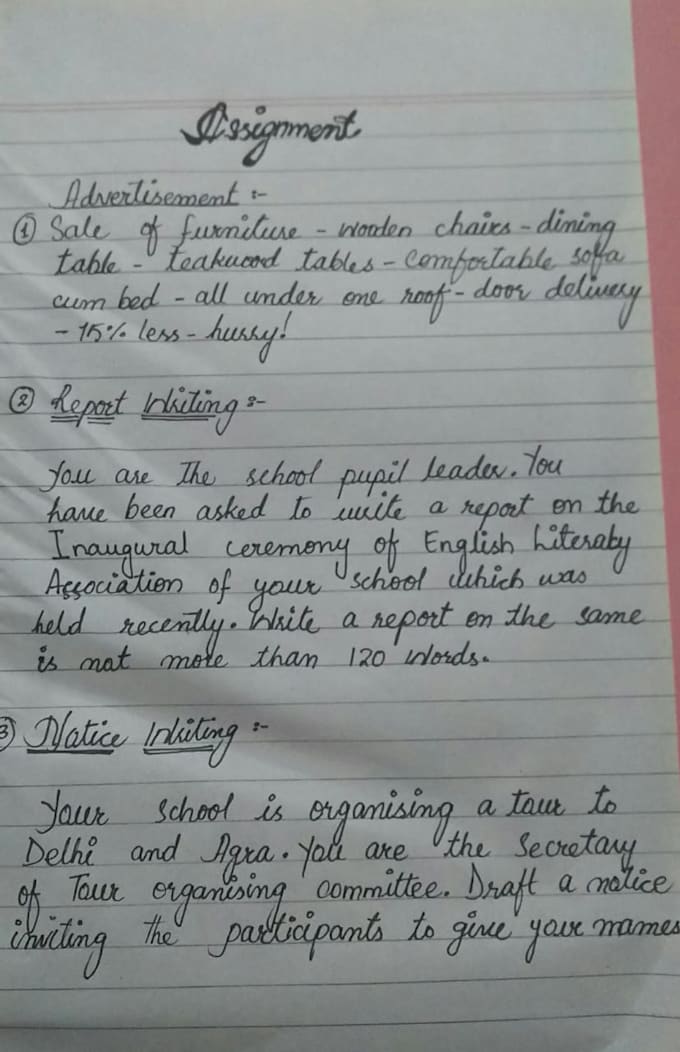 Assignment
Advertisement :-
① Sale of furniture - wooden chairs - dining
table - teakwood tables - comfortable sofa
cum bed - all under one roof - door delivery
- 15% less - hurry!
② Report Writing :-
You are The school pupil leader. You
have been asked to write a report on the
Inaugural ceremony of English Literaby
Association of your school which was
held recently. Write a report on the same
is not more than 120 words.
3) Notice Writing :-
Your school is organising a tour to
Delhi and Agra. You are the Secretary
of Tour organising committee. Draft a notice
inviting the participants to give your names